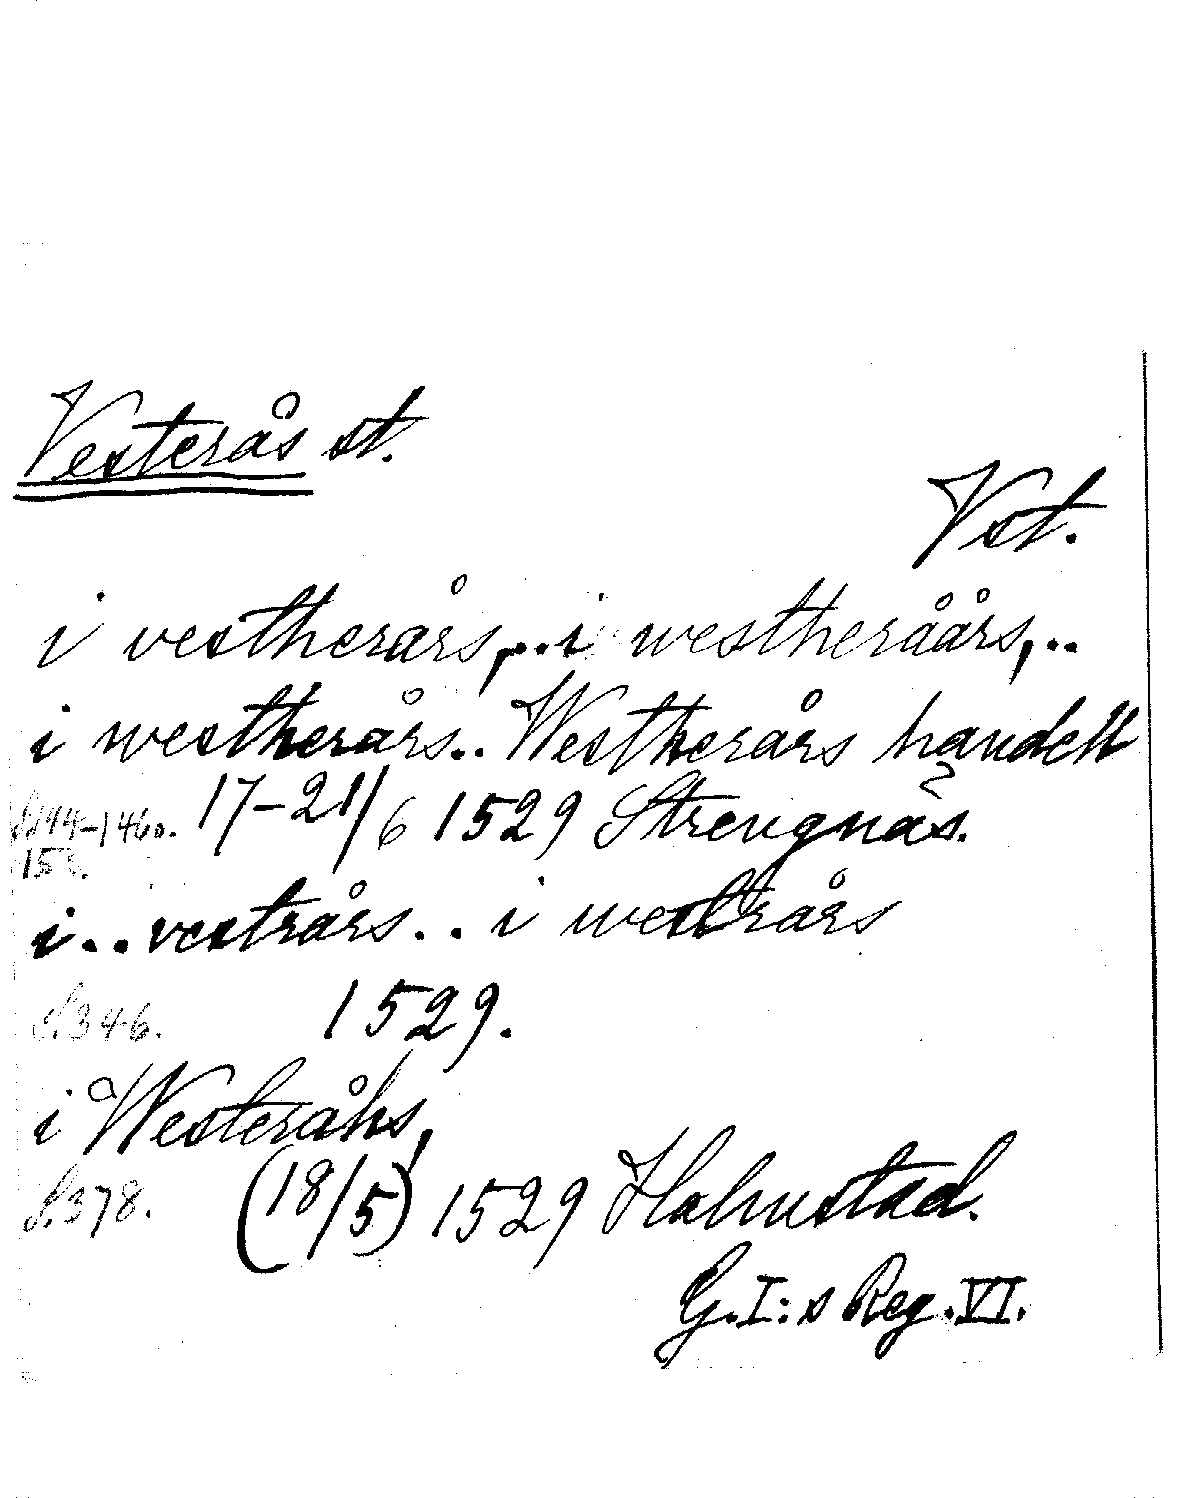 Vesterås st.
Vst.
i vestherårs,.. i westheråårs,..
i westherårs.. Westherårs handell
S.144-146o. 17-21/6 1529 Strengnäs.
i.. vestrårs.. i westrårs
S.346. 1529.
i Westeråhs,
S.378. (18/5) 1529 Halmstad.
G.I:s Reg. VI.